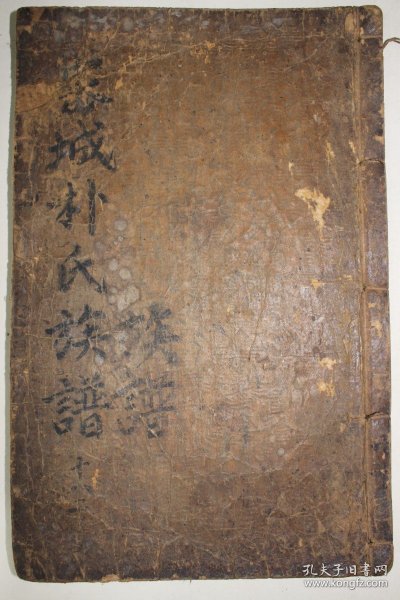 族譜
城朴氏族譜
孔夫子旧书网
www.kongfz.com